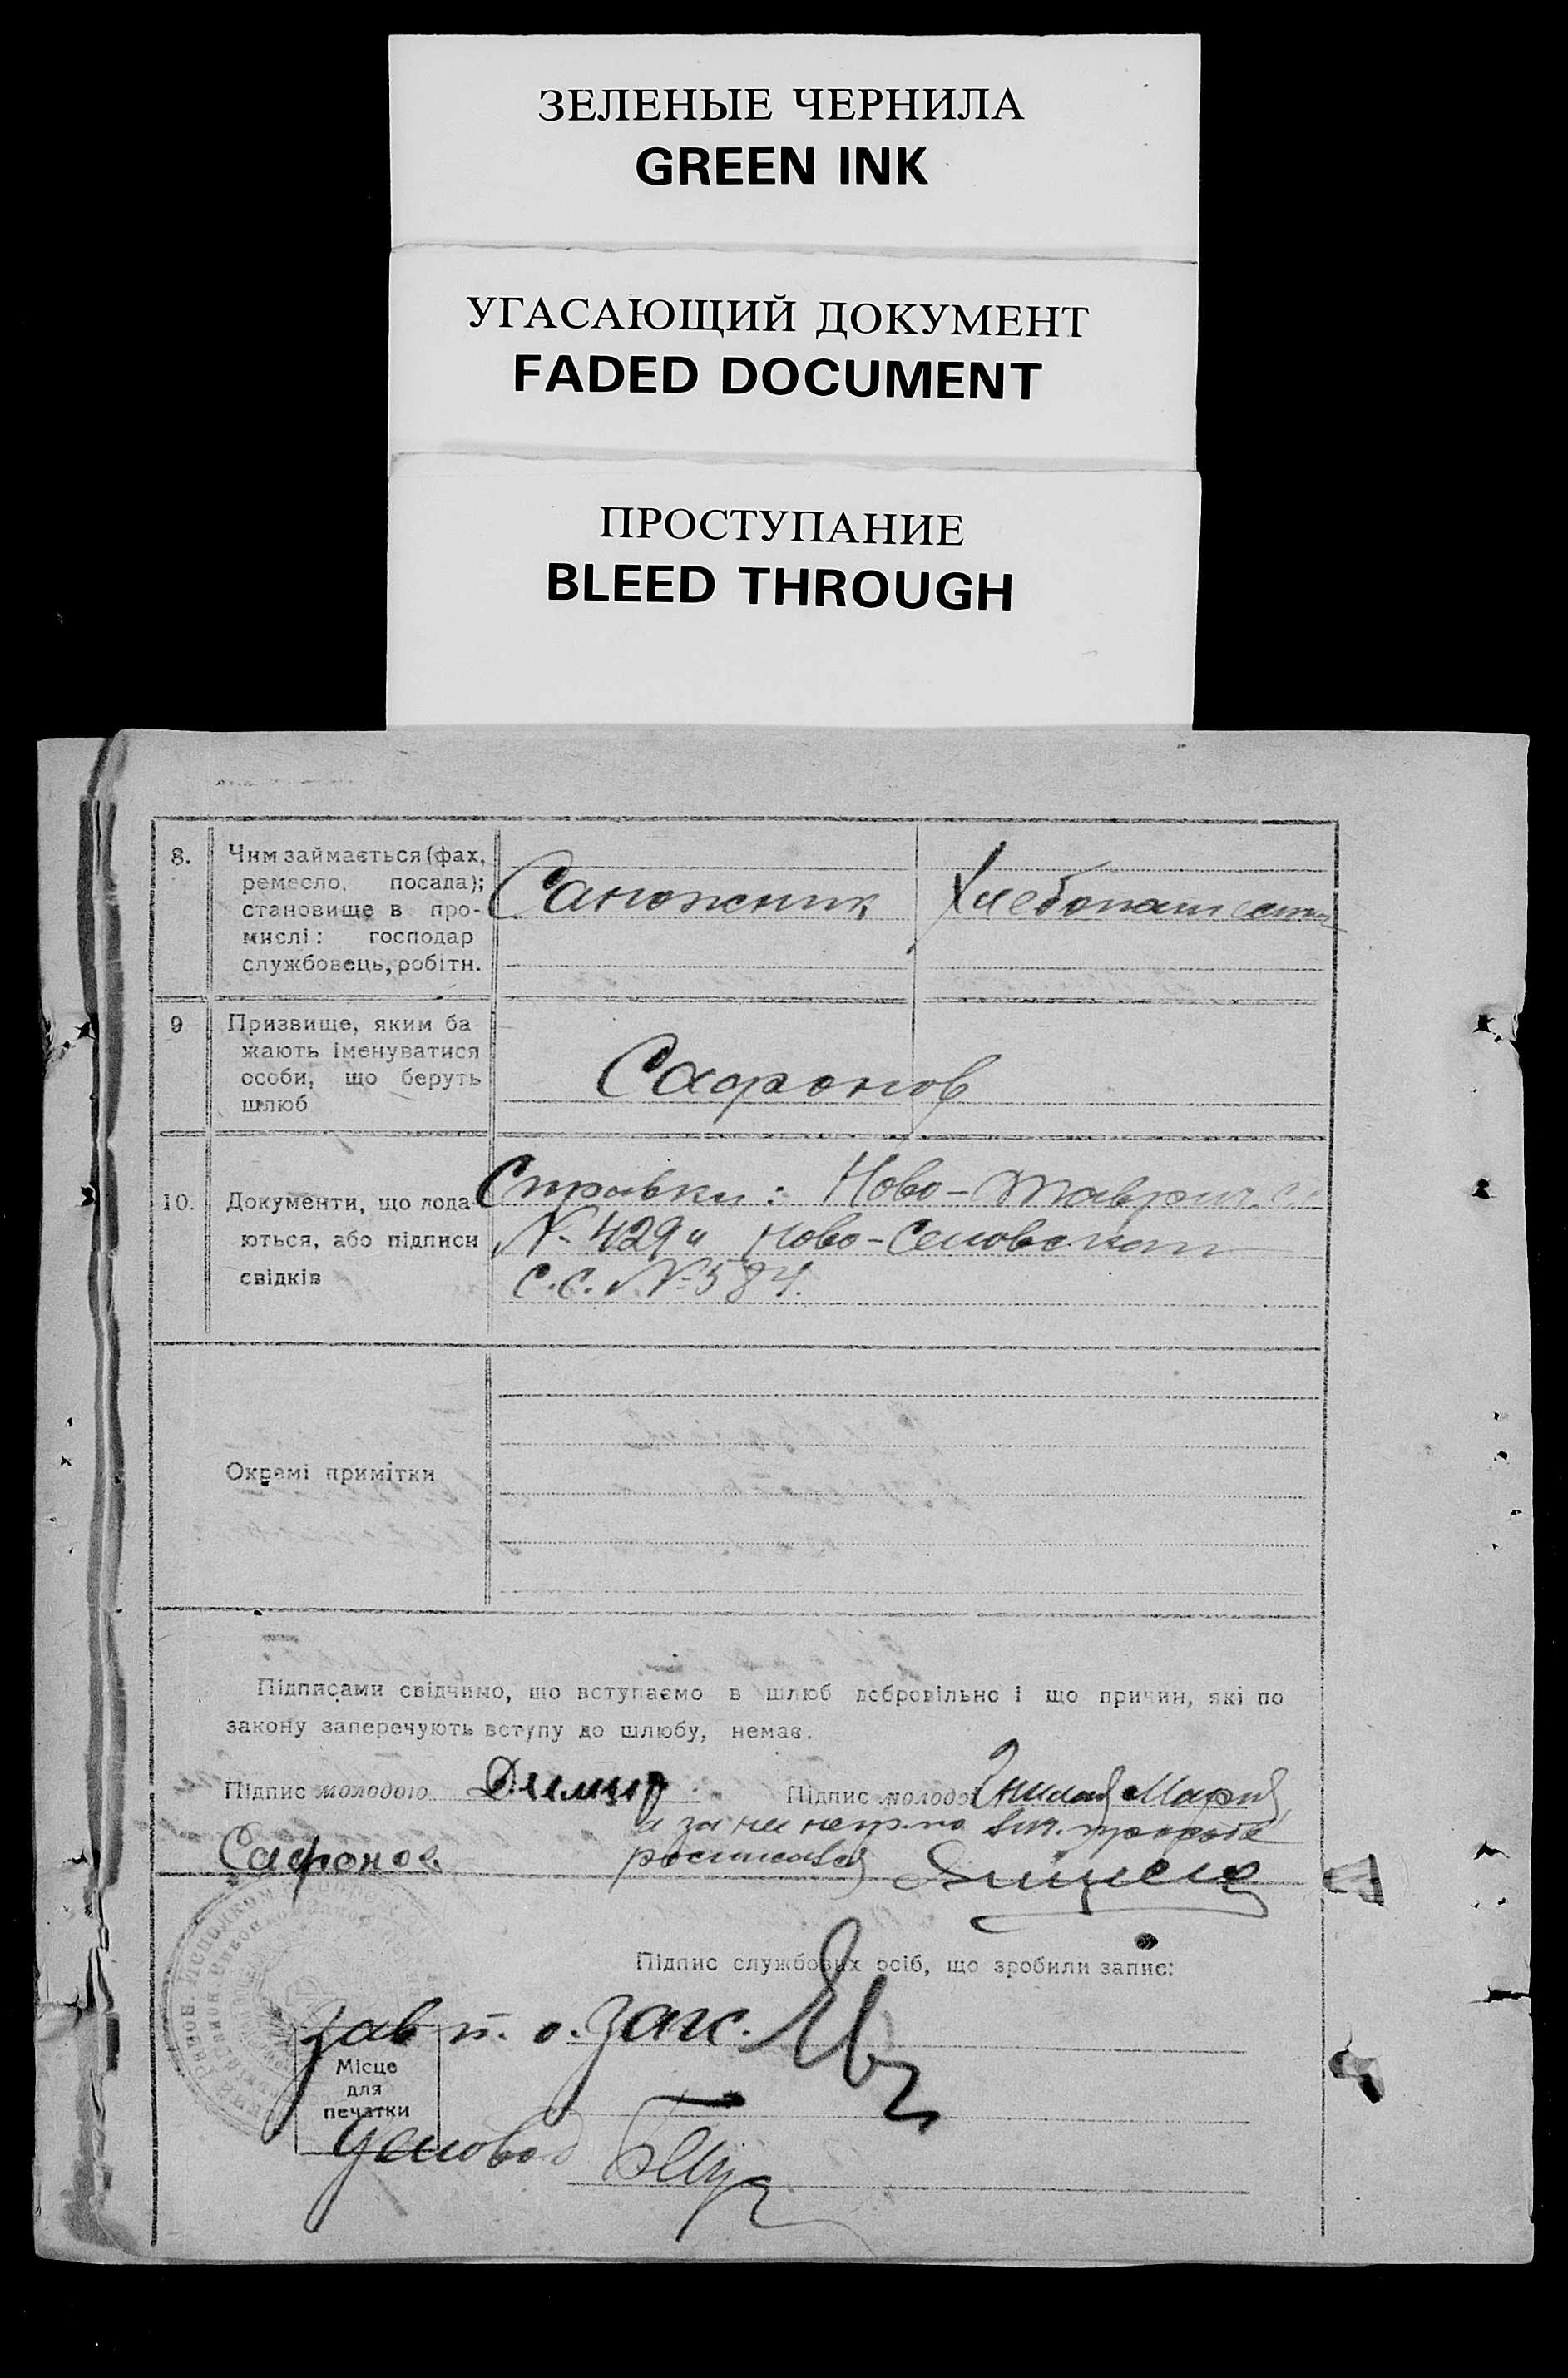 ЗЕЛЕНЫЕ ЧЕРНИЛА
GREEN INK
УГАСАЮЩИЙ ДОКУМЕНТ
FADED DOCUMENT
ПРОСТУПАНИЕ
BLEED THROUGH
8.
Чим займається (фах,
ремесло, посада);
становище в про-
мислі: господар
службовець, робітн.
Сапожник
9
Призвище, яким ба
жають іменуватися
особи, що беруть
шлюб
Сафронов
10.
Документи, що пода-
ються, або підписи
свідків
Справки: Ново-Таврич.
№ 429 и Ново-
с.с. № 584.
Окремі примітки
Підписами свідчимо, що вступаємо в шлюб добровільно і що причин, які по
закону заперечують вступу до шлюбу, немає.
Підпис молодого
Сафонов
Підпис молодо Мария
Підпис службових осіб, що зробили запис:
Зав п. о. Загс.
Місце
для
печатки